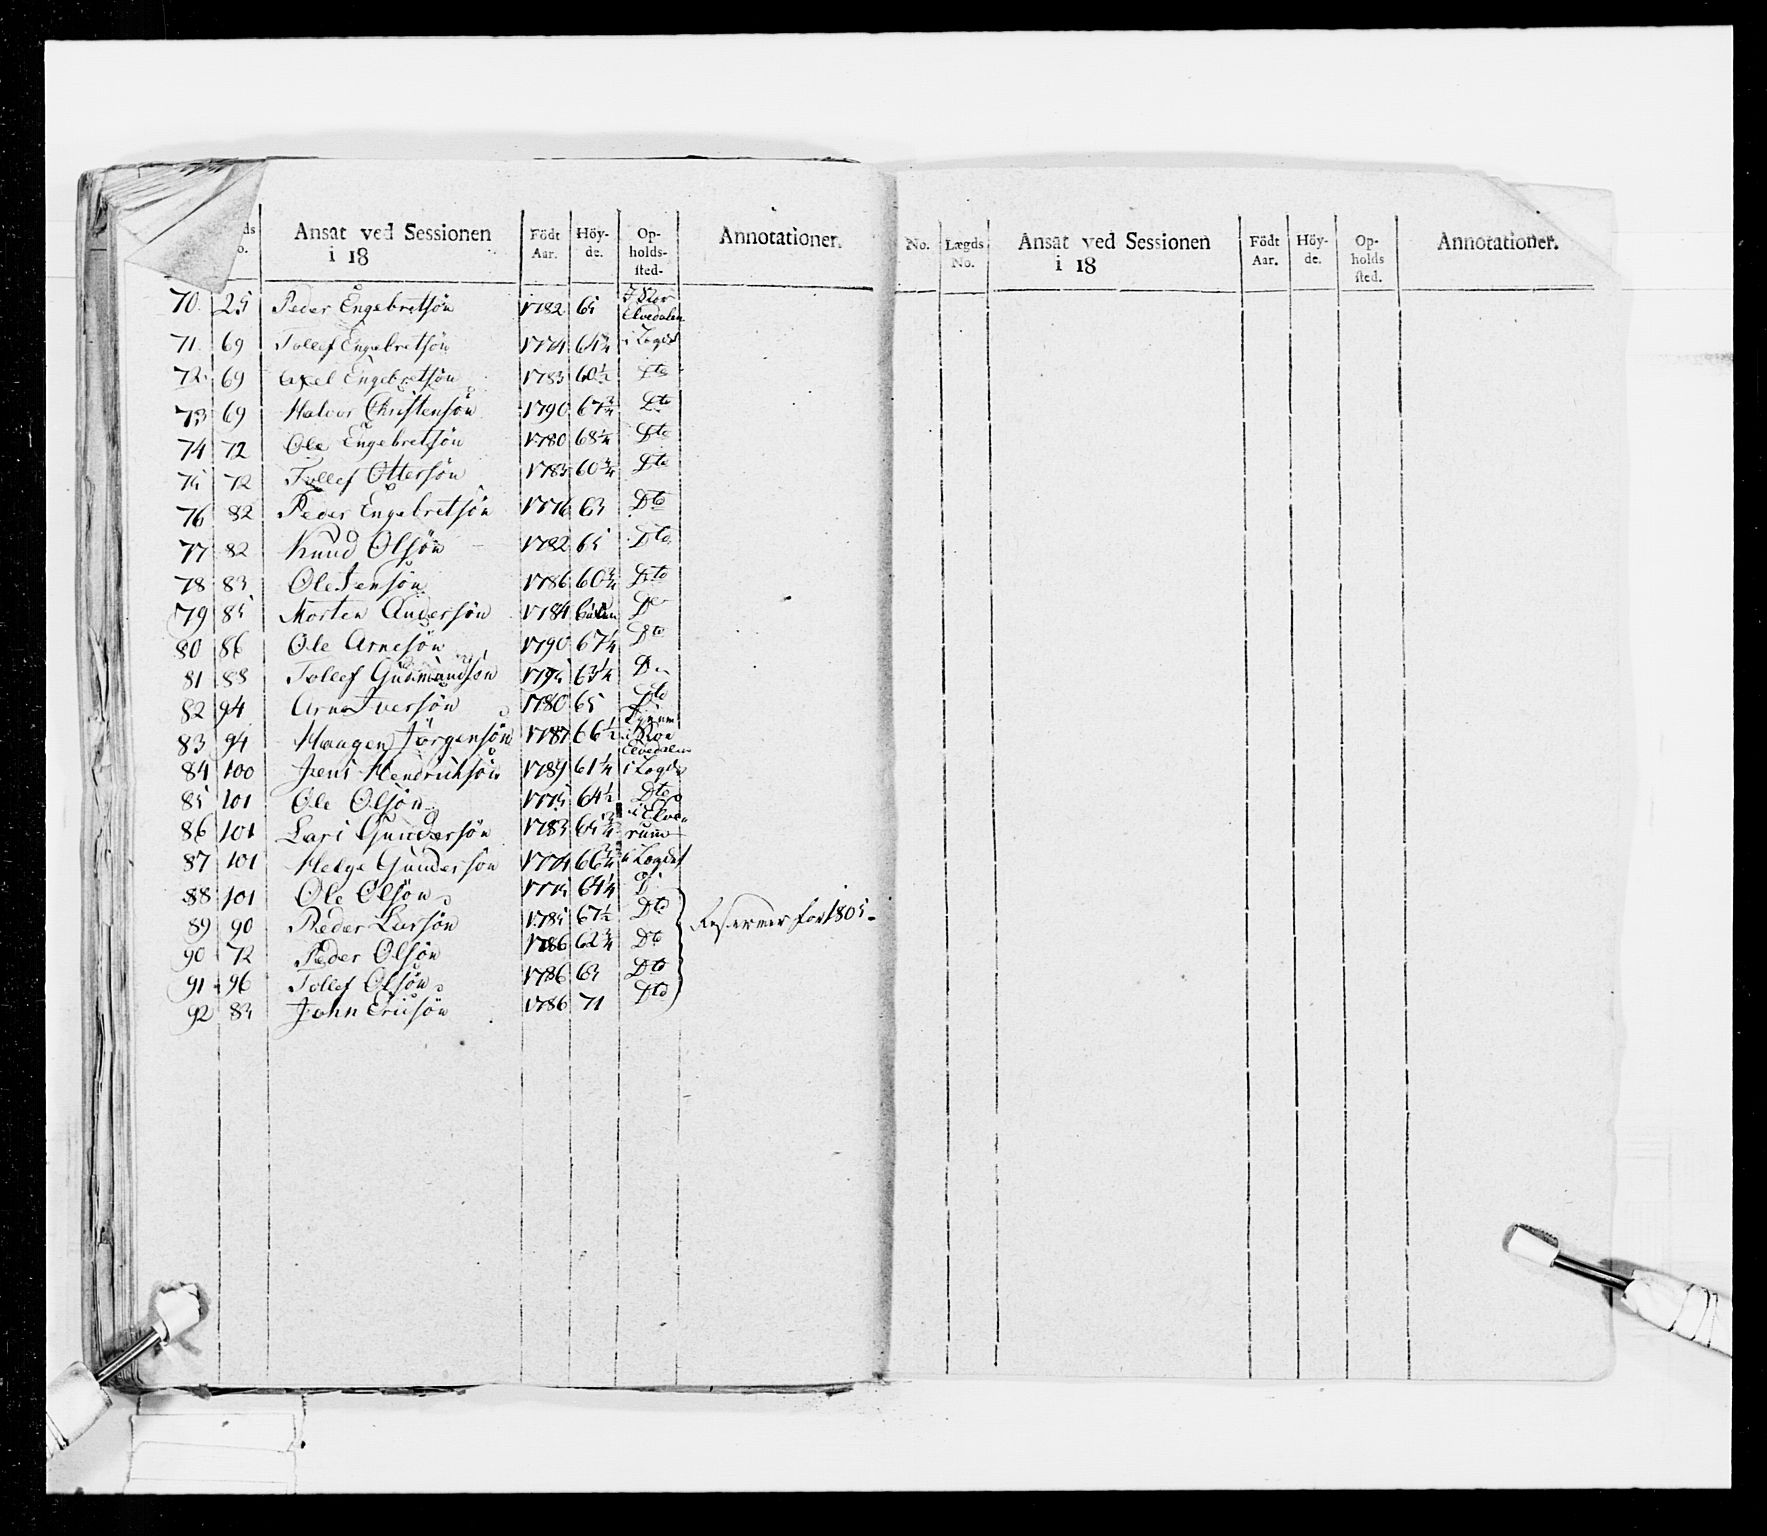 ds o. Ansat ved Sessionen i 18 Födt Aar. Höy- de. Op- holds- sted- Annotationer.
70. 25 Peder Engebretsön 1782 65 I Stor Elvedalen
71. 69 Tollef Engebretsön 1774 64¾ i Lægdet
72. 69 Axel Engebretsön 1783 60½ Dto
73 69 Halvor Christensön 1790 67¾ Dto
74 72 Ole Engebretsön 1780 68¼ Dto
75 72 Tollef Ottersön 1785 60¾ Dto
76 82 Peder Engebretsön 1776 63 Dto
77 82 Knud Olsön 1782 65 Dto
78 83 Ole Jensön 1786 60¾ Dto
79 85 Morten Andersön 1784 Do
80 86 Ole Arnesön 1790 67¼ Dto
81 88 Tollef Gudmundsön 63¼ Do
82 94 Arne Iversön 1780 65 Dto
83 94 Haagen Jörgensön 1787 66½ i Stor Elvedalen
84 100 Jens Hendricksön 1789 61¼ i Lægdet
85 101 Ole Olsön 1775 64½ Dto
86 101 Lars Gundersön 1783 i Elve rum
87 101 Helge Gundersön 1774 66¾ i Lægdet
88 101 Ole Olsön 1775 64¼ D.
89 90 Peder Larsön 1785 67½ Dto for 1805-
90 72 Peder Olsön 1786 62¾ Dto
91 96 Tollef Olsön 1786 63 Dto
92 83 John Ericsön 1786 71 Dto
No. Lægds No. Ansat ved Sessionen i 18 Födt Aar. Höy- de. Op- holds sted. Annotationer.